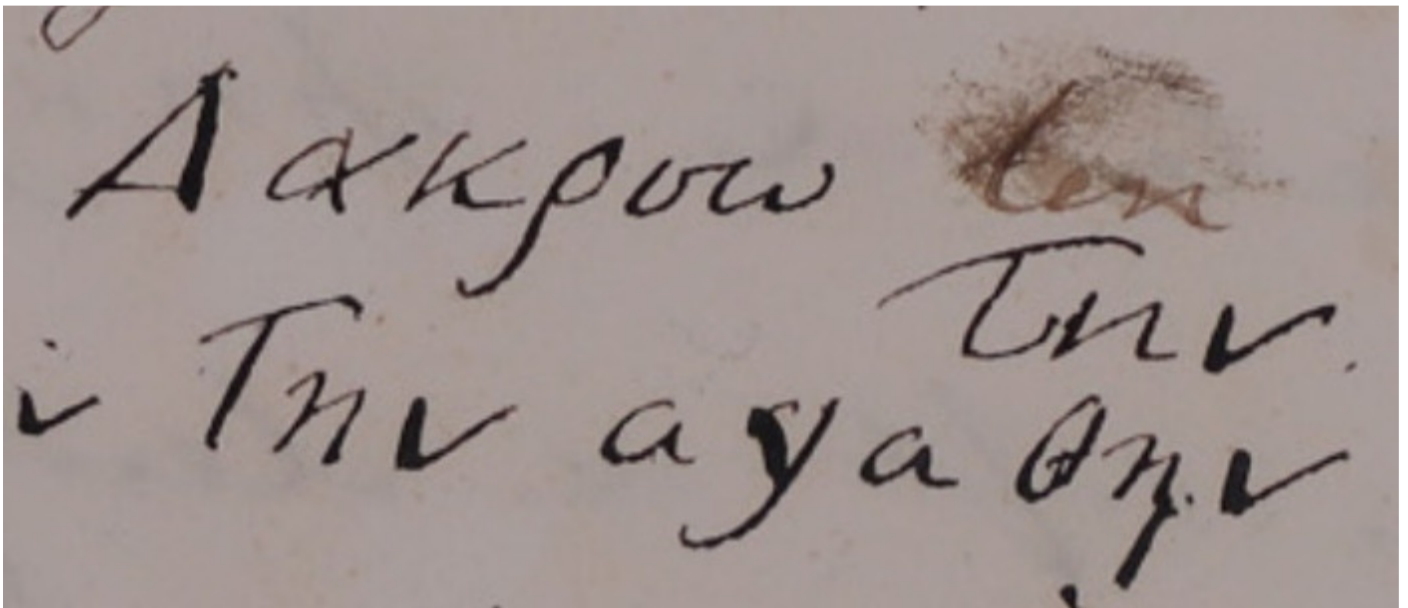 Δακρυω
την
ν Την αγαθην